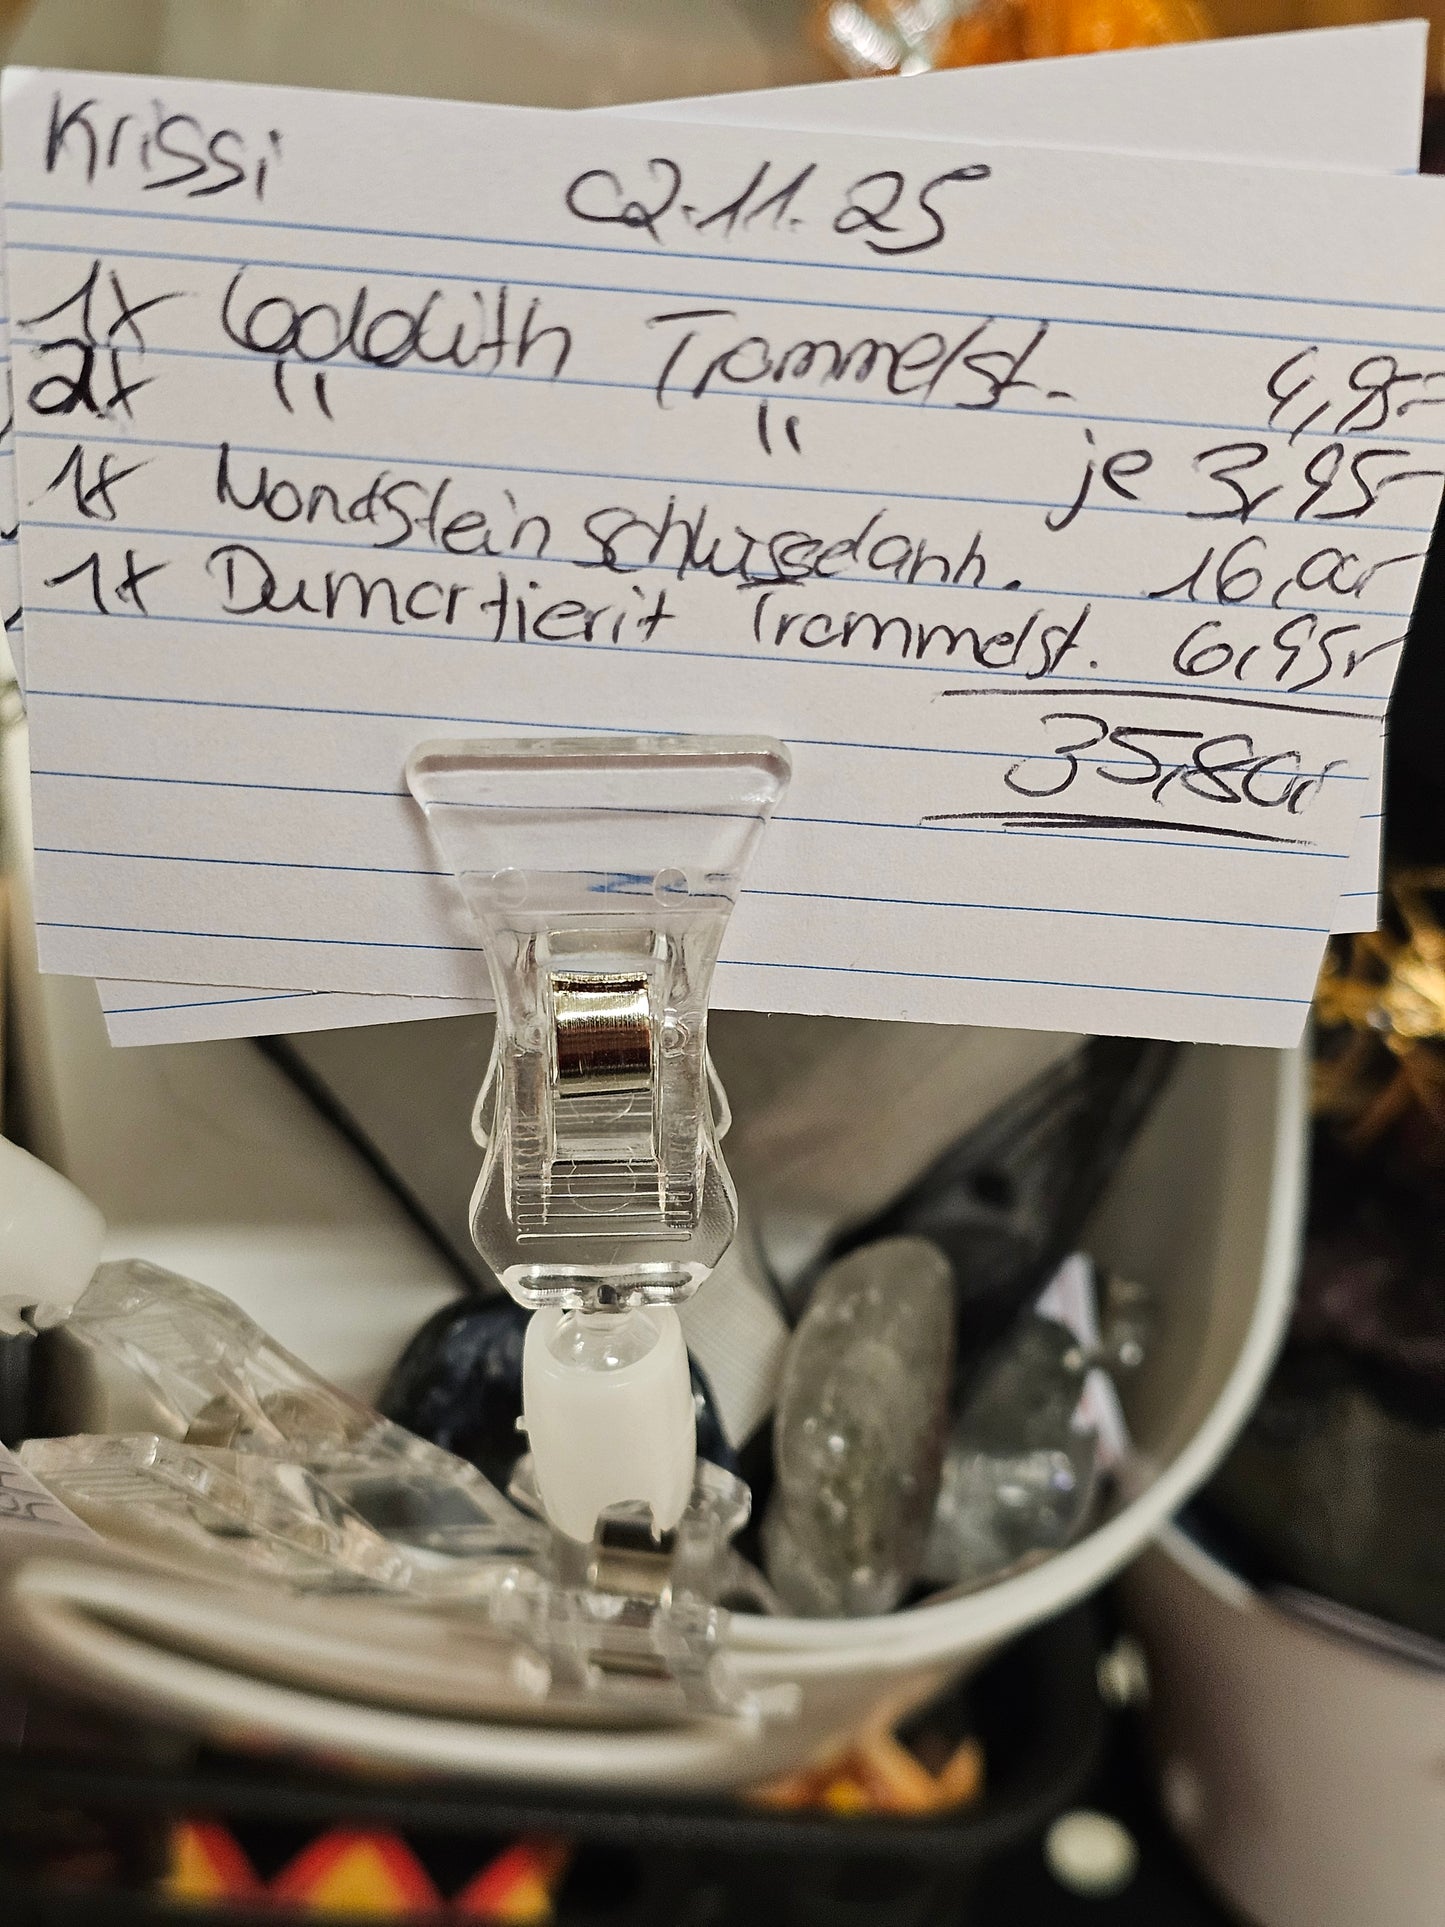 Krissi 02.11.25
1x Trommelst. 4,95-
2x " " je 3,95-
1x Mondstein Schlüsselanh. 16,00-
1x Dumortierit Trommelst. 6,95-
35,80-